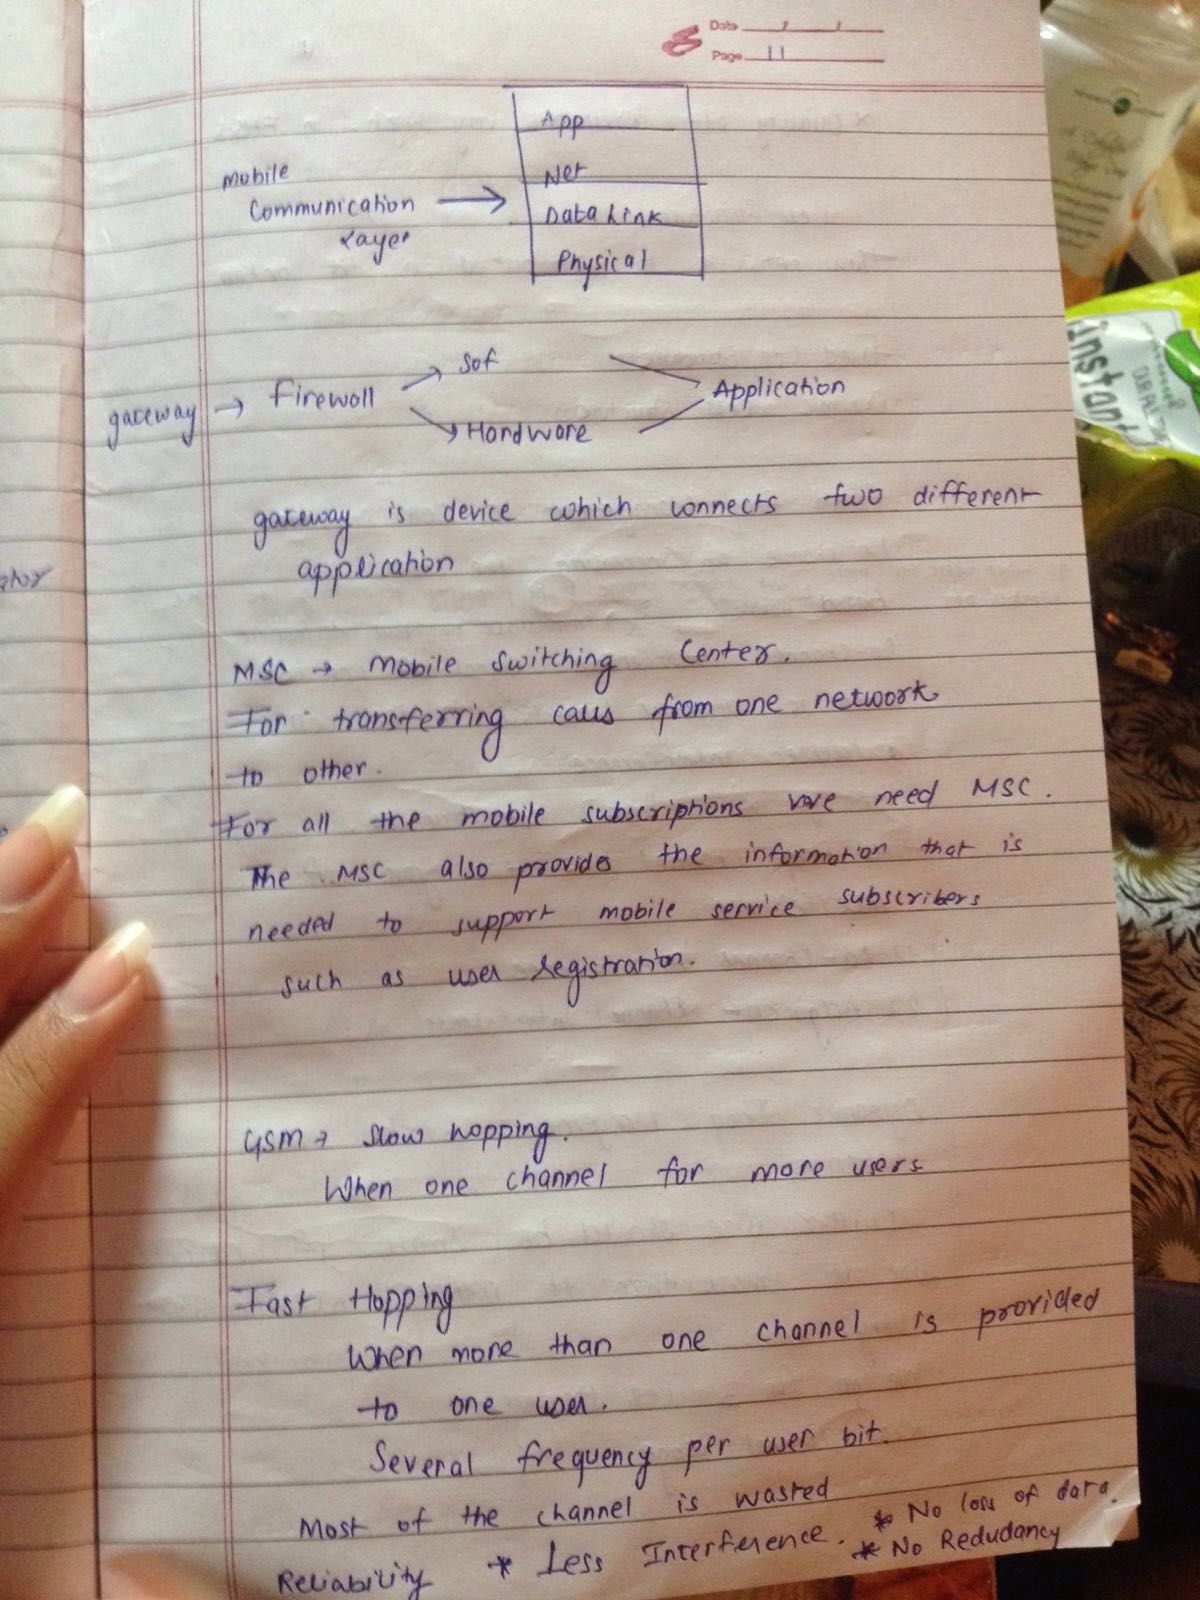 Date
Page 11
App
Net
Data Link
Physical
mobile
Communication
Layer
gateway → Firewall
Sof
Hardware
Application
gateway is device which connects two different
application
MSC → Mobile Switching Center.
For transferring calls from one network
to other.
For all the mobile subscriptions we need MSC.
The MSC also provides the information that is
needed to support mobile service subscribers
such as user registration.
GSM → Slow hopping.
When one channel for more users
Fast Hopping
When more than one channel is provided
to one user.
Several frequency per user bit.
Most of the channel is wasted
Reliability * Less Interference. * No loss of data.
* No Redudancy
instant